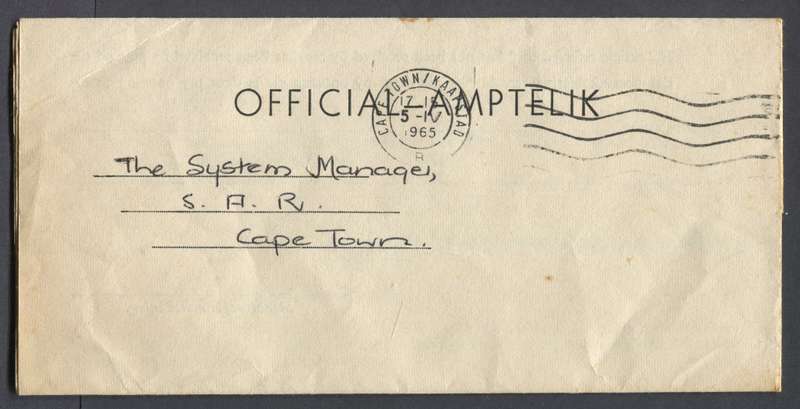 CAPE TOWN/KAAPSTAD
5-IV
1965
OFFICIAL—AMPTELIK
The System Manager,
S. A. R.
Cape Town.